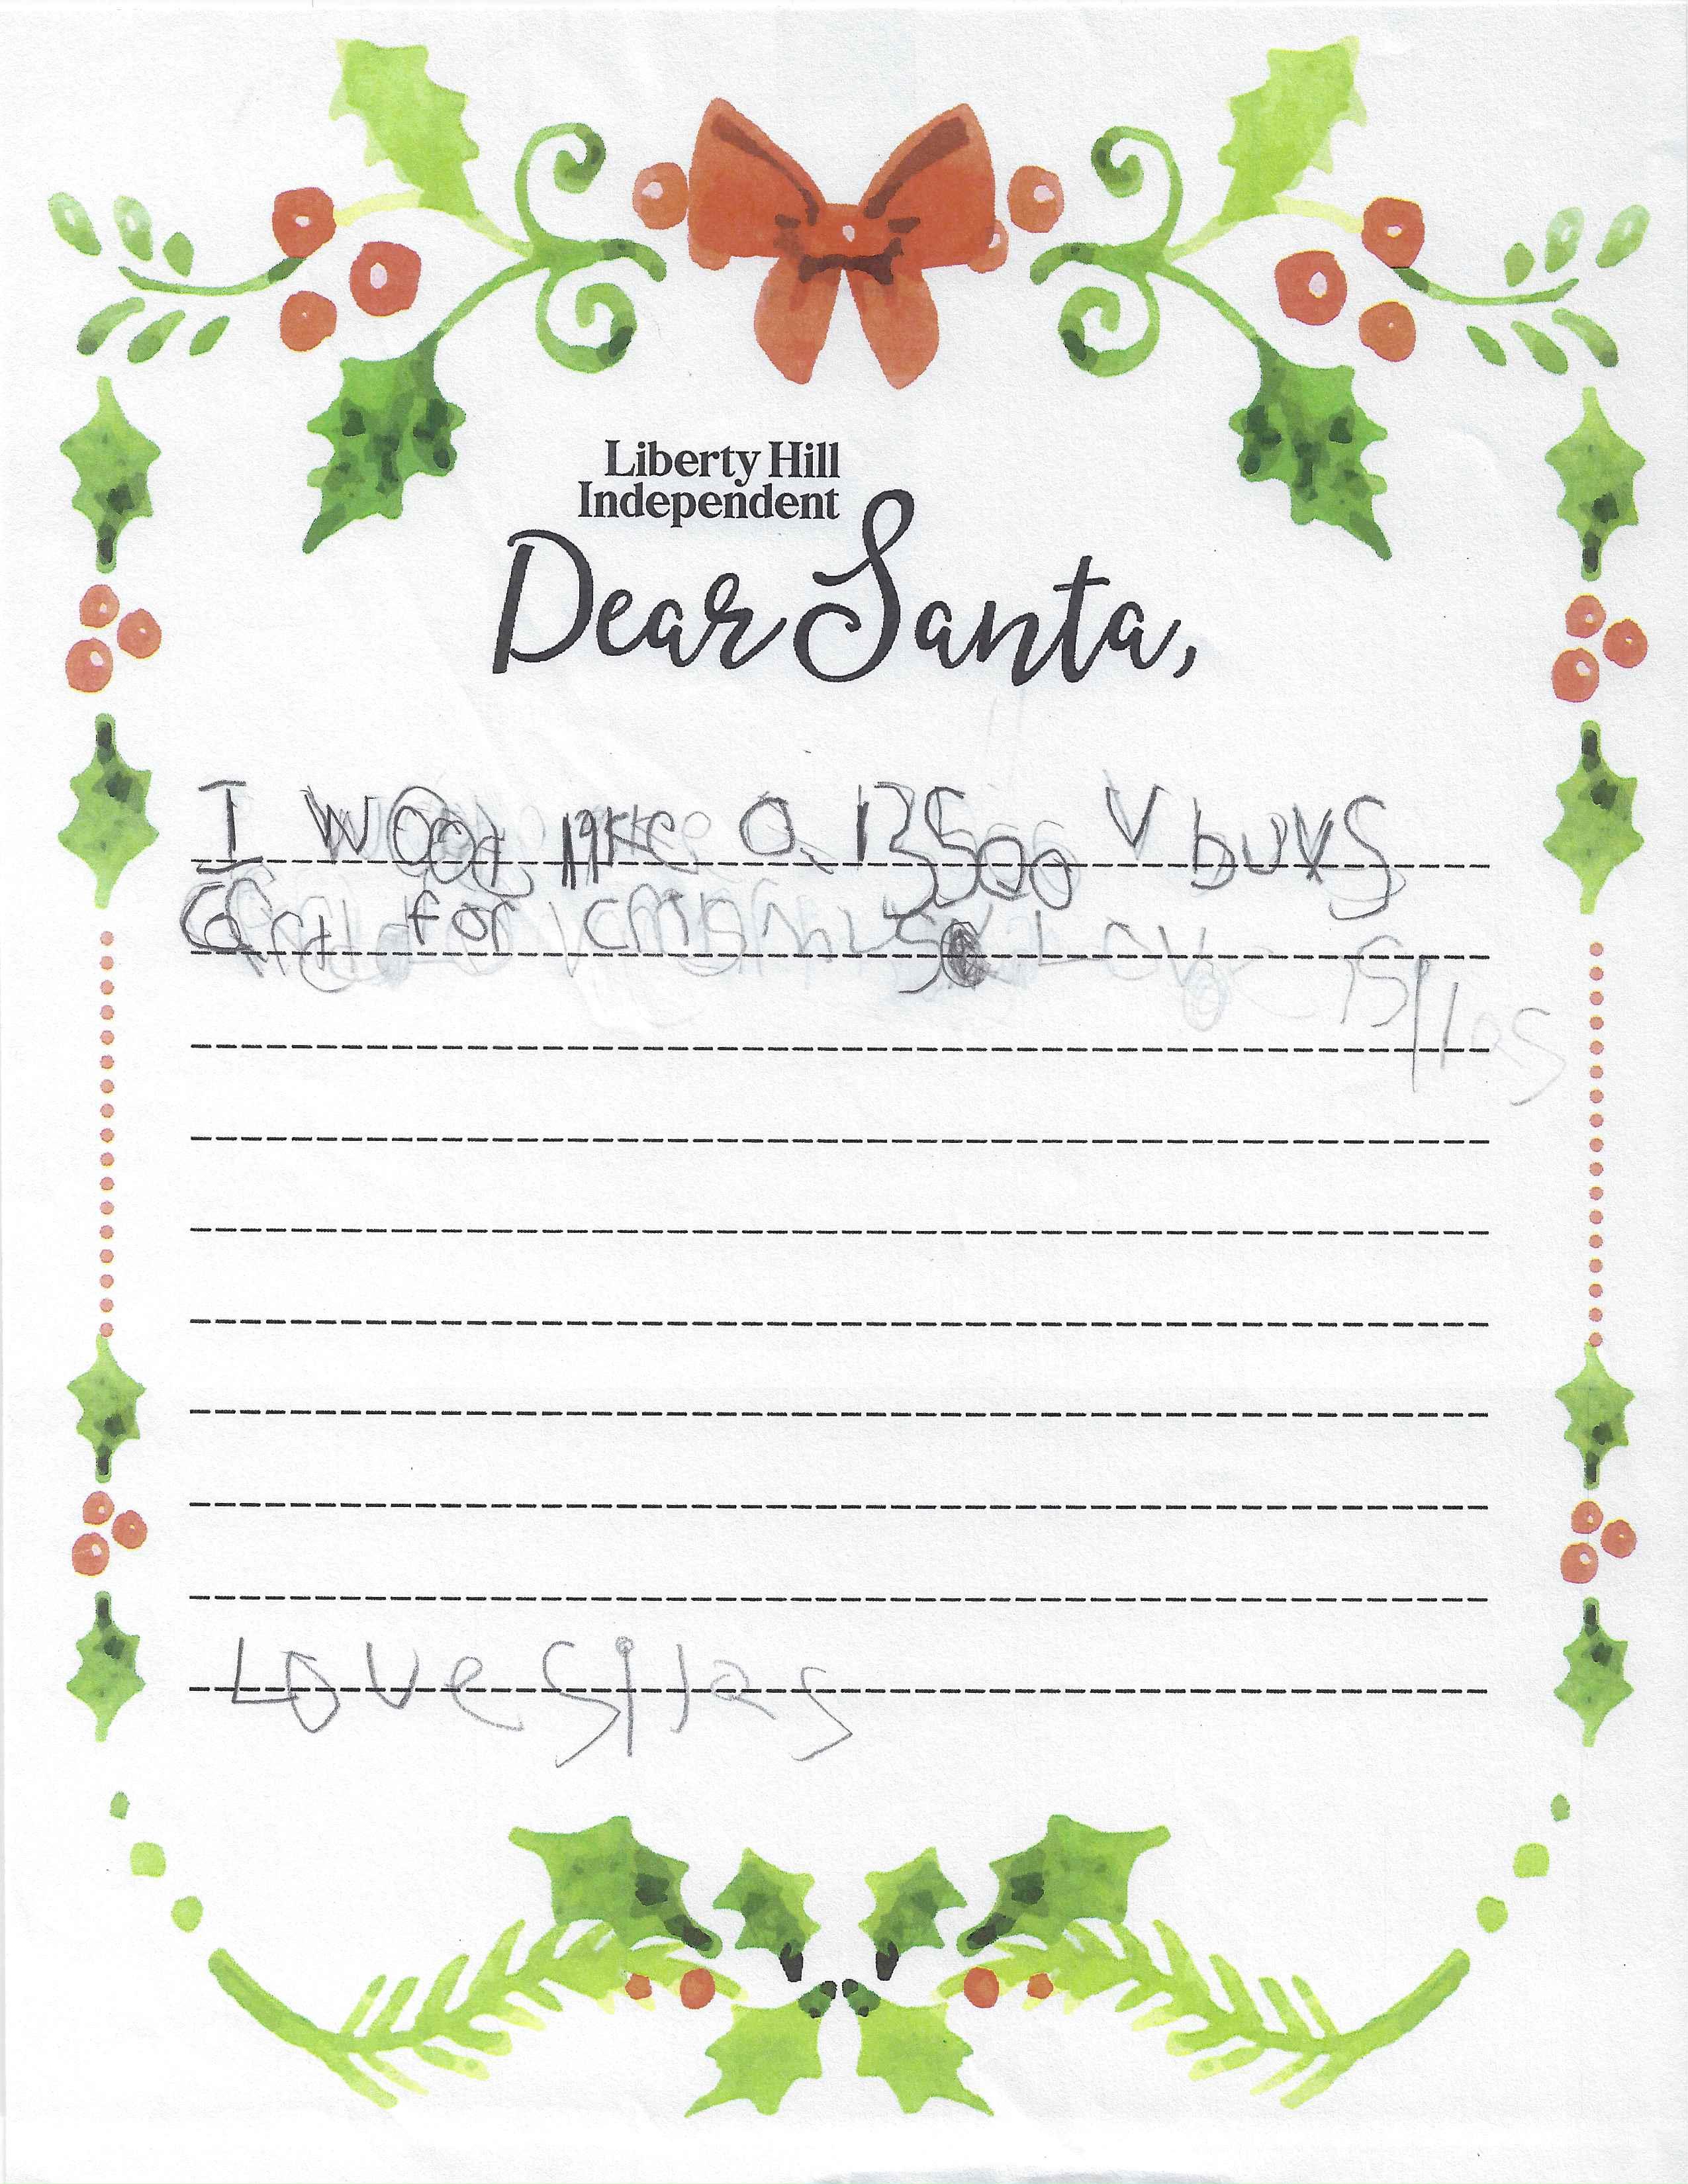 Liberty Hill
Independent
Dear Santa,
I wood like a 13500 V buvs
Card for crismus Love Silas
Love Silas